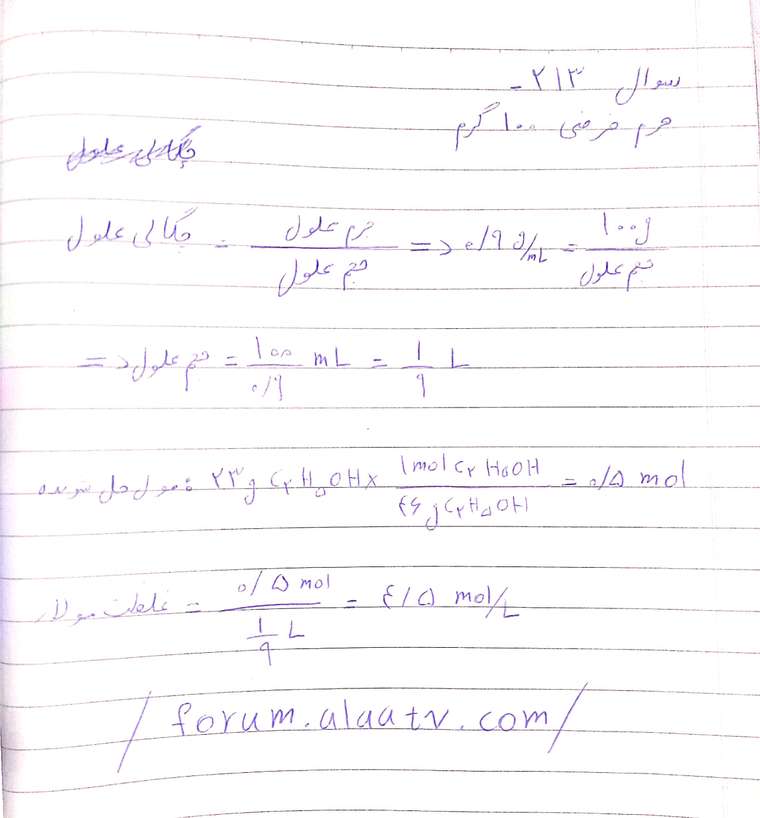 سوال ۲۱۳ -
جرم فرضی ۱۰۰ گرم
چگالی محلول
چگالی محلول = جرم محلول / حجم محلول => ۰/۹ g/mL = ۱۰۰g / حجم محلول
=> حجم محلول = ۱۰۰ / ۰/۹ mL = ۱ / ۹ L
مول حل شونده : ۲۳g C۲H۵OH × ۱mol C۲H۵OH / ۴۶g C۲H۵OH = ۰/۵ mol
غلظت مولار = ۰/۵ mol / ۱/۹ L = ۴/۵ mol/L
/ forum.alaatv.com /